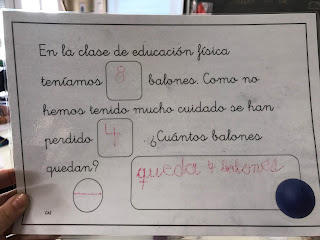 En la clase de educación física
teníamos 8 balones. Como no
hemos tenido mucho cuidado se han
perdido 4 ¿Cuántos balones
quedan? queda 4 balones